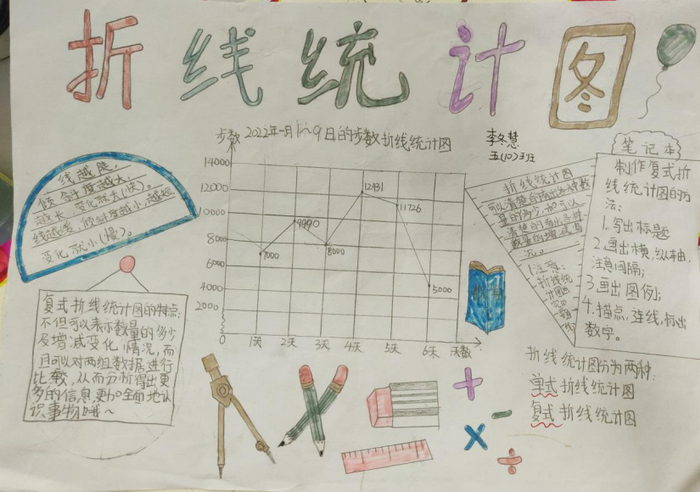 折线统计图
步数 2022年一月1~9日的步数折线统计图
李冬慧
五(10)班
14000
12000
10000
8000
6000
4000
2000
0
7000
9990
8000
12131
11726
5000
1天 2天 3天 4天 5天 6天 天数
线越陡,
变化就小(慢)。
复式折线统计图的特点:
不但可以表示数量的多少
及增减变化情况,而
且可以对两组数据进行
比较,从而分析得出更
多的信息,更加全面地认
识事物哦~
折线统计图
注意:
折线统
笔记本
制作复式折
线统计图的方
法:
1.写出标题
2.画出横,纵轴,
注意间隔;
3.画出图例;
4.描点,连线,标出
数字。
折线统计图分为两种:
单式折线统计图
复式折线统计图